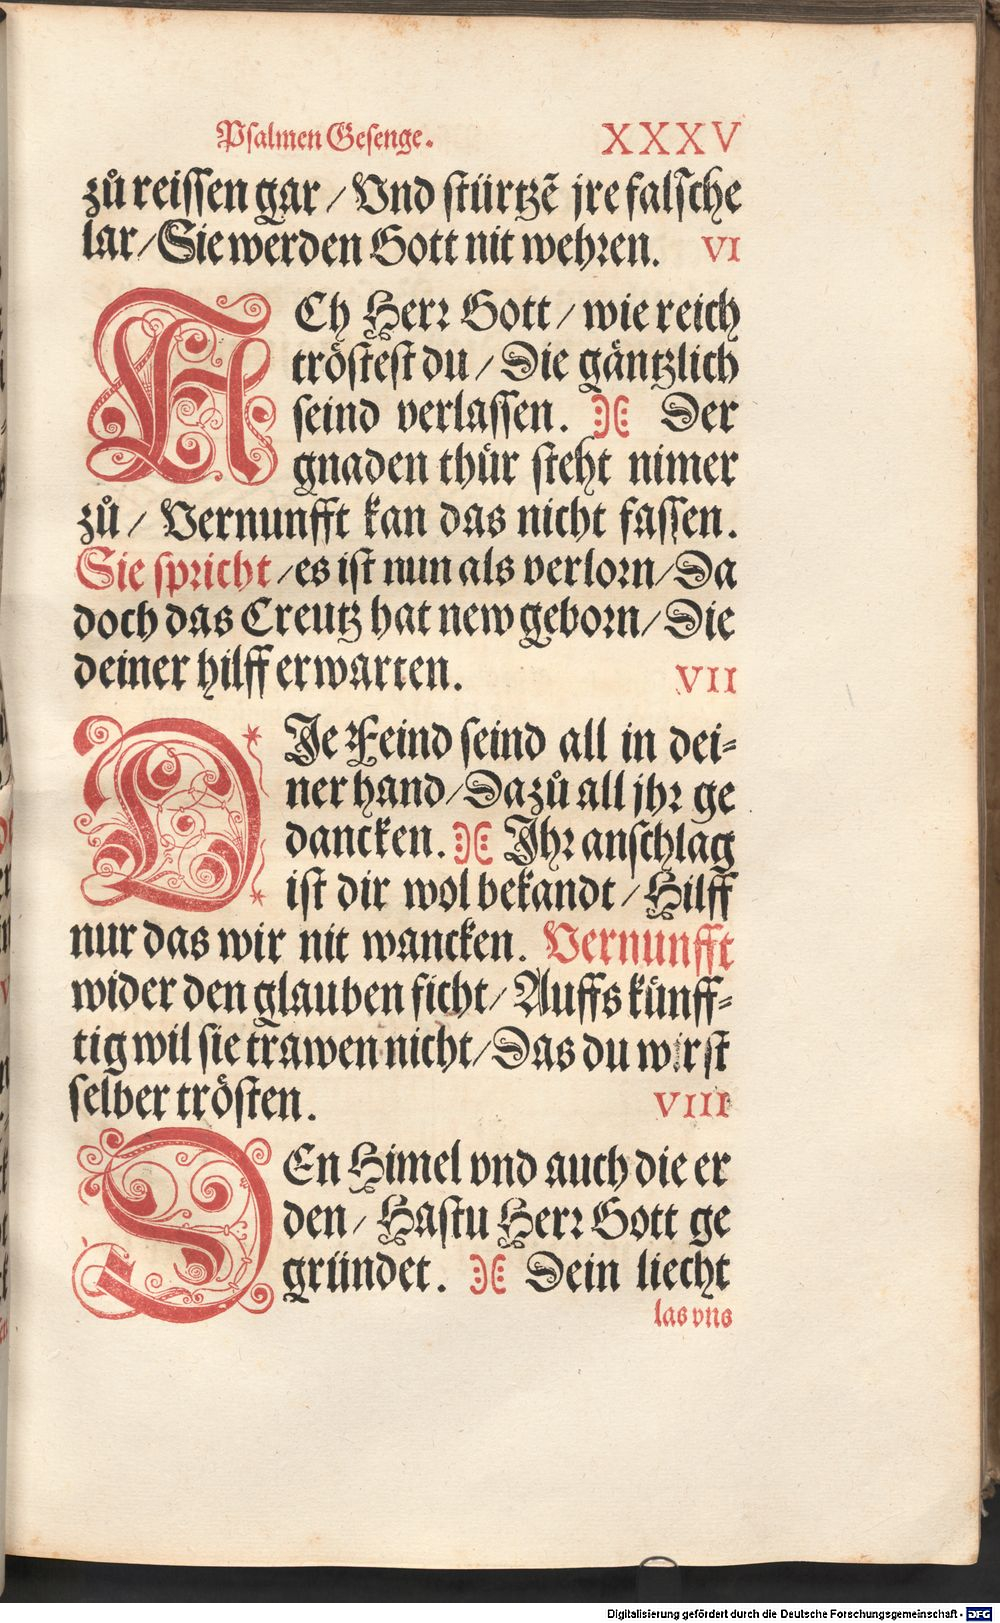 Psalmen Gesenge. XXXV
zů reissen gar / Vnd stürtzẽ jre falsche
lar / Sie werden Gott nit wehren. VI
ACh Herr Gott / wie reich
tröstest du / Die gäntzlich
seind verlassen. Der
gnaden thůr steht nimer
zů / Vernunfft kan das nicht fassen.
Sie spricht / es ist nun als verlorn / Da
doch das Creutz hat new geborn / Die
deiner hilff erwarten. VII
DJe Feind seind all in dei-
ner hand / Dazů all jhr ge
dancken. Jhr anschlag
ist dir wol bekandt / Hilff
nur das wir nit wancken. Vernunfft
wider den glauben ficht / Auffs künff-
tig wil sie trawen nicht / Das du wirst
selber trösten. VIII
DEn Himel vnd auch die er
den / Hastu Herr Gott ge
gründet. Dein liecht
las vns
Digitalisierung gefördert durch die Deutsche Forschungsgemeinschaft - DFG